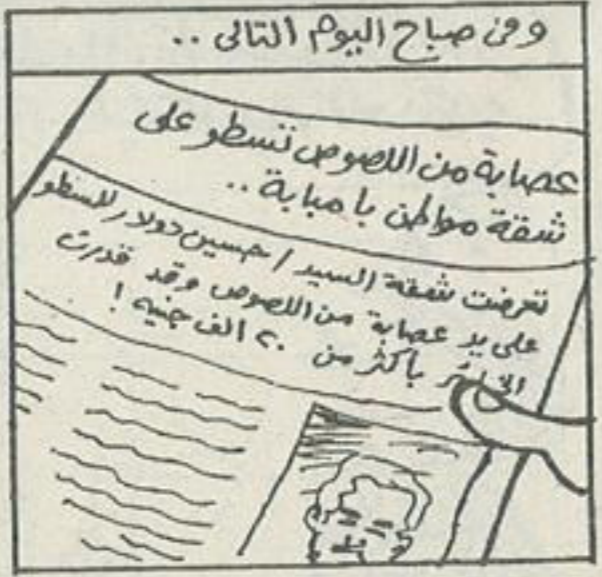 وفى صباح اليوم التالى ..
عصابة من اللصوص تسطو على
شقة مواطن بامبابة ..
تعرضت شقة السيد / حسين دولار للسطو
على يد عصابة من اللصوص وقد قدرت
بأكثر من ٢٠ الف جنيه !